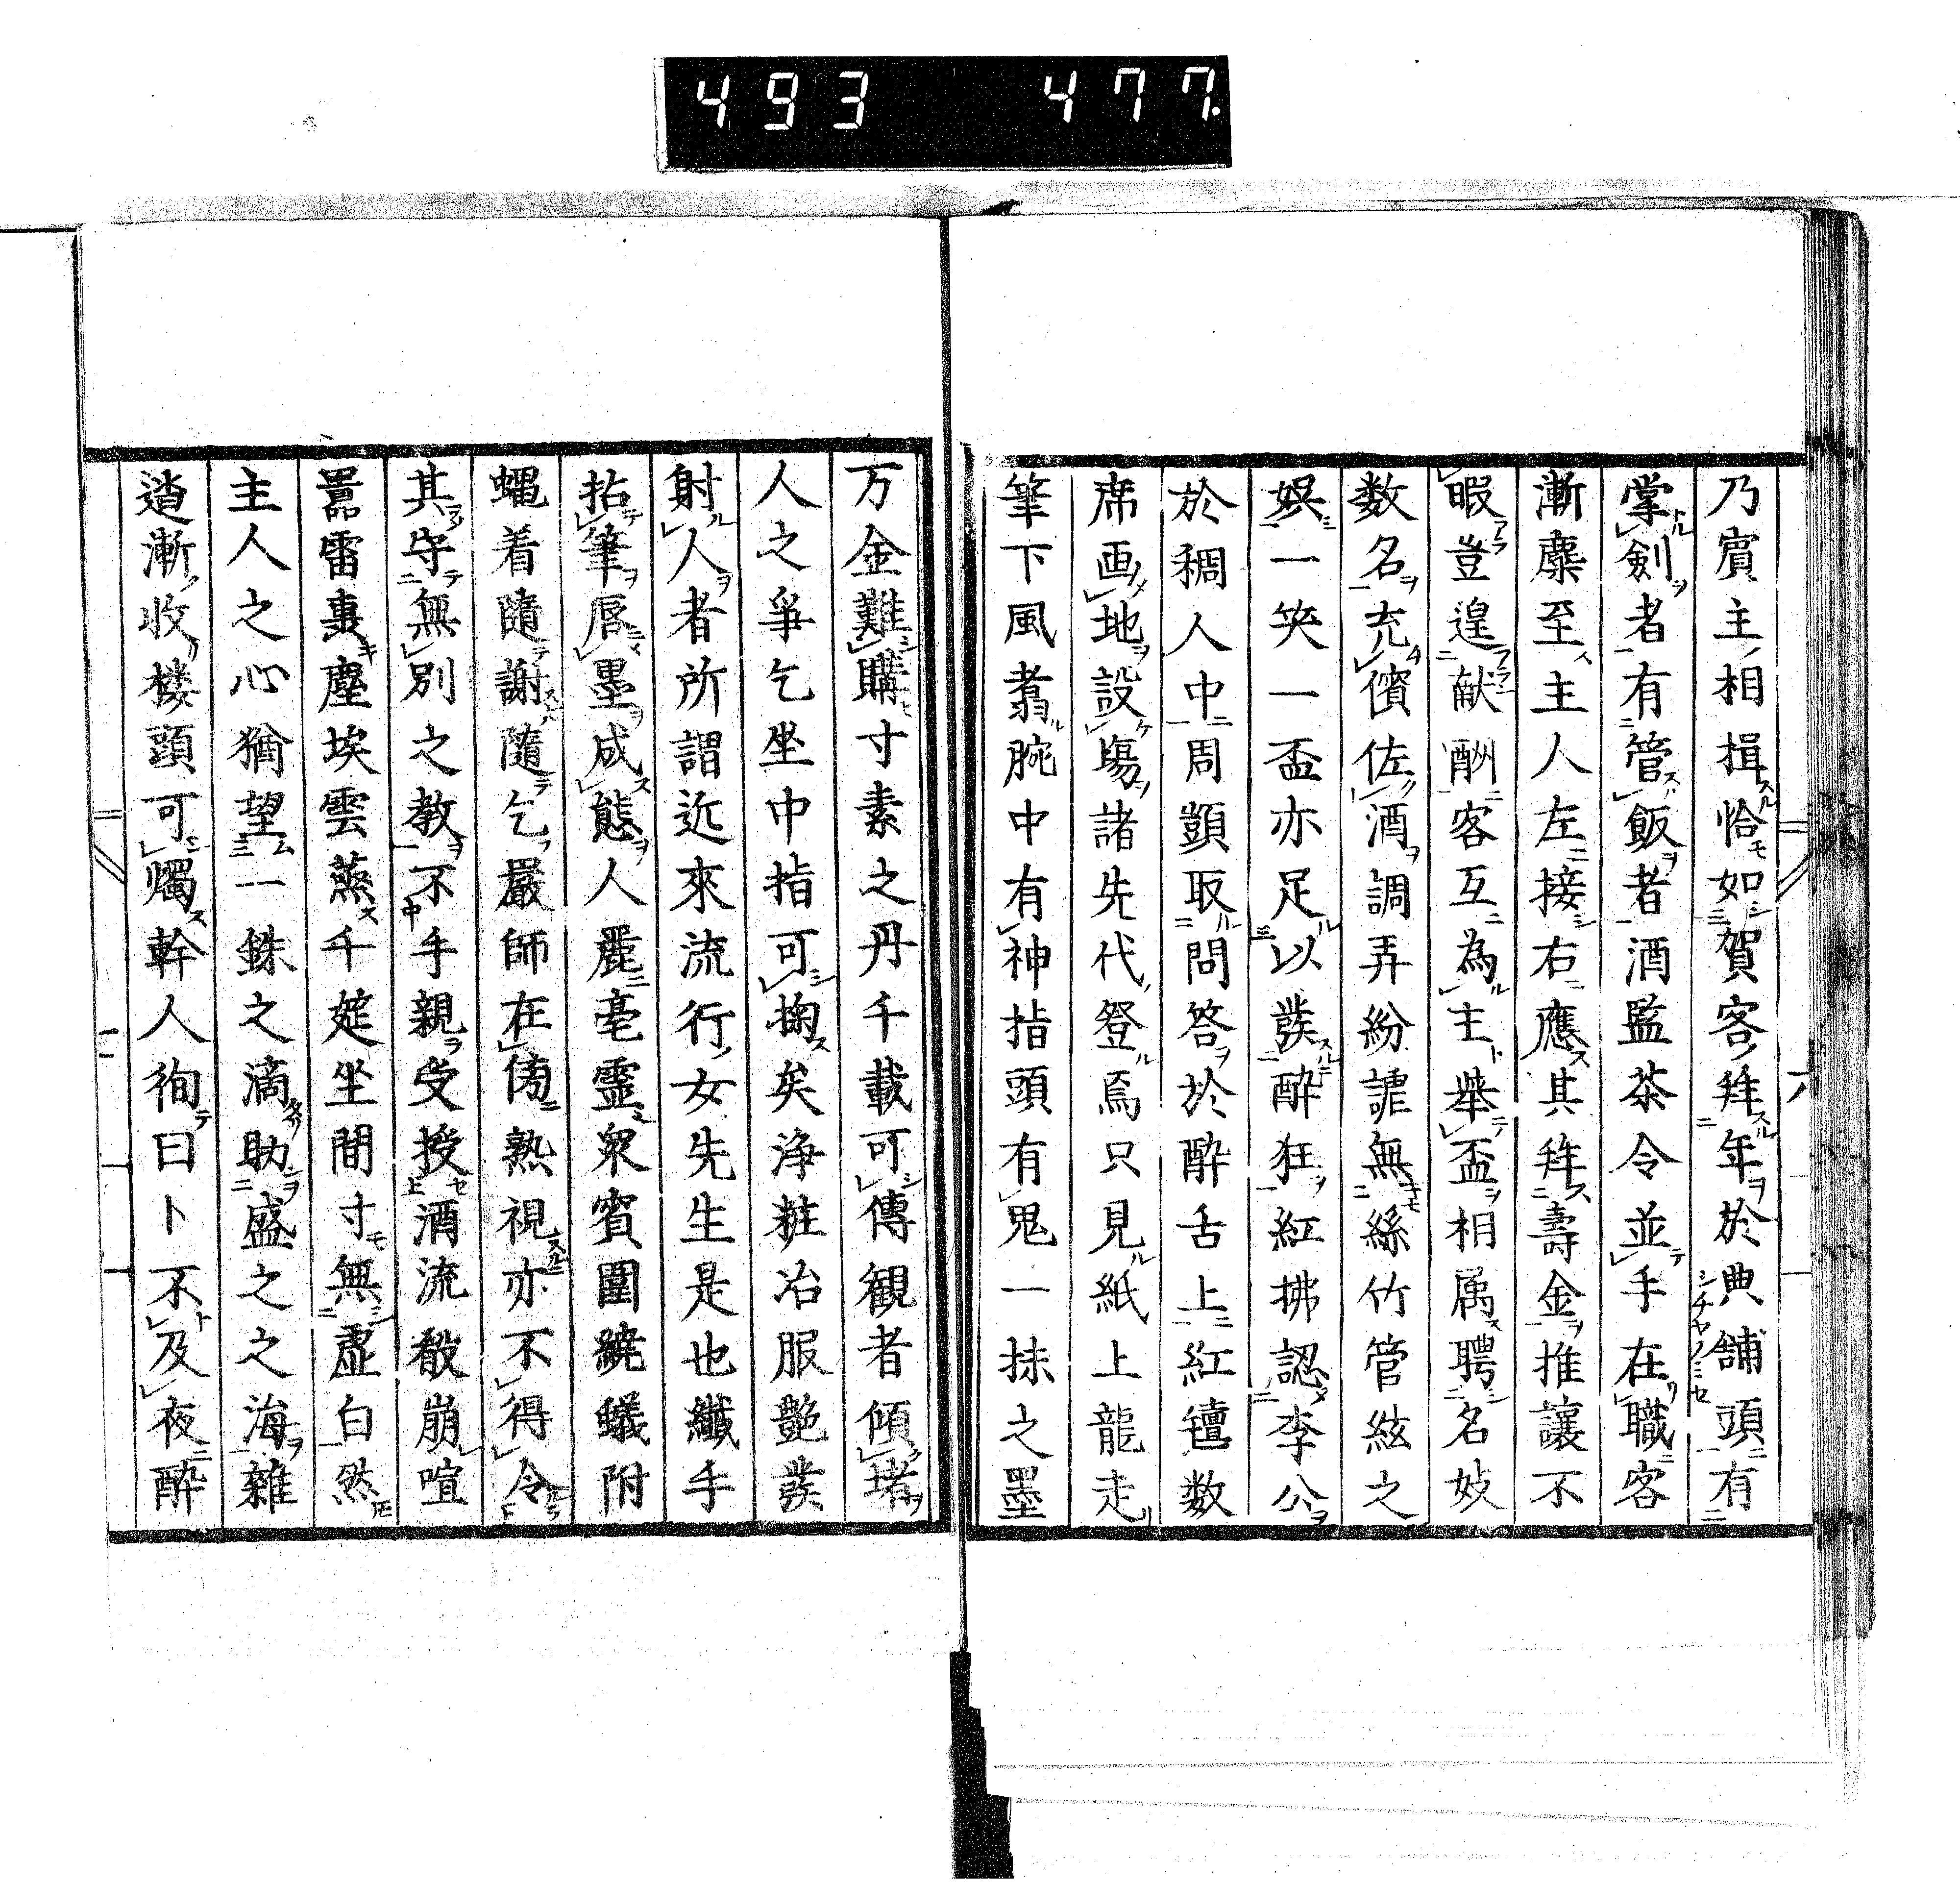 493 477.
乃賓主相揖恰如賀客拜年於典舗頭有
掌劍者有管飯者酒監茶令並手在職客
漸麇至主人左接右應其拜壽金推讓不
暇豈遑献酬客互為主舉盃相属聘名妓
数名充儐佐酒調弄紛謔無絲竹管絃之
娯一笑一盃亦足以發醉狂紅拂認李公
於稠人中周顗取問答於醉舌上紅氊数
席画地設場諸先代登焉只見紙上龍走
筆下風翥腕中有神指頭有鬼一抹之墨
万金難購寸素之丹千載可傳観者傾堵
人之爭乞坐中指可掬矣浄粧冶服艶發
射人者所謂近來流行女先生是也纖手
拈筆唇墨成態人麗毫靈衆賓圍繞蟻附
蠅着隨謝隨乞嚴師在傍熟視亦不得令
其守無別之教不手親受授酒流殽崩喧
囂雷轟塵埃雲蒸千筵坐間寸無虚白然
主人之心猶望一銖之滴助盛之之海雑
遝漸收楼頭可燭幹人徇曰卜不及夜醉